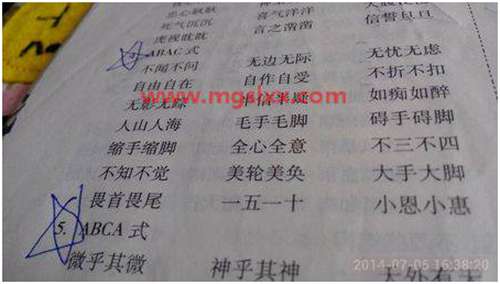 忠心耿耿 喜气洋洋
死气沉沉 言之凿凿 信誓旦旦
虎视眈眈
ABAC 式
不闻不问 无边无际 无忧无虑
自由自在 自作自受 不折不扣
无影无踪 半信半疑 如痴如醉
www.mgsbxx.com
人山人海 毛手毛脚 碍手碍脚
缩手缩脚 全心全意 不三不四
不知不觉 美轮美奂 大手大脚
畏首畏尾 一五一十 小恩小惠
5. ABCA 式
微乎其微 神乎其神 天外有天
2014-07-05 16:38:20